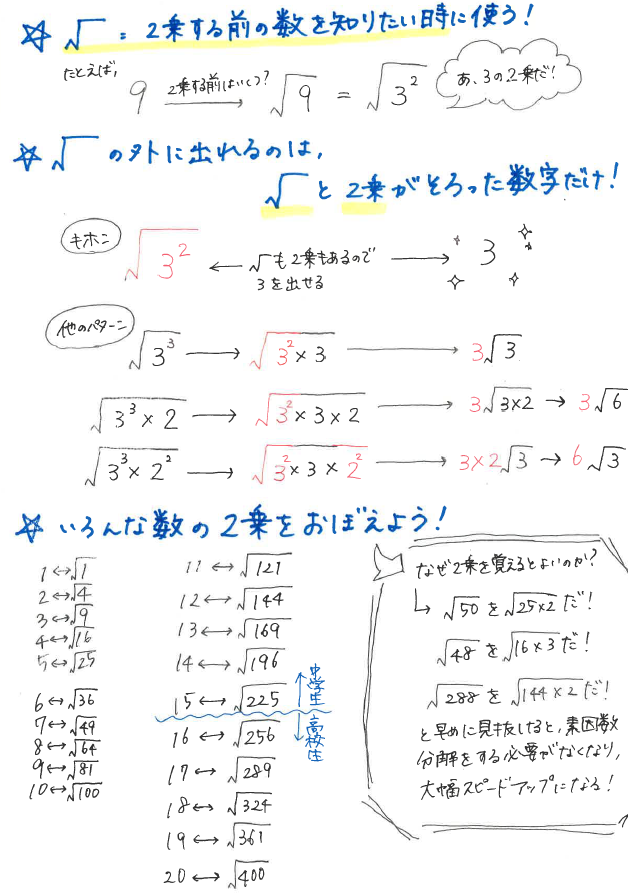 ☆ √ = 2乗する前の数を知りたい時に使う!
たとえば,
9 2乗する前はいくつ? → √9 = √3² あ、3の2乗だ!
☆ √ の外に出れるのは,
√ と 2乗がそろった数字だけ!
キホン √3² ← √も2乗もあるので → 3
3を出せる
他のパターン
√3³ → √3²×3 → 3√3
√3³×2 → √3²×3×2 → 3√3×2 → 3√6
√3³×2² → √3²×3×2² → 3×2√3 → 6√3
☆ いろんな数の2乗をおぼえよう!
1↔√1
2↔√4
3↔√9
4↔√16
5↔√25
6↔√36
7↔√49
8↔√64
9↔√81
10↔√100
11↔√121
12↔√144
13↔√169
14↔√196
15↔√225
↑中学生
↓高校生
16↔√256
17↔√289
18↔√324
19↔√361
20↔√400
なぜ2乗を覚えるとよいのか?
↳ √50を√25×2だ!
√48を√16×3だ!
√288を√144×2だ!
と早めに見抜けると,素因数
分解をする必要がなくなり,
大幅スピードアップになる!